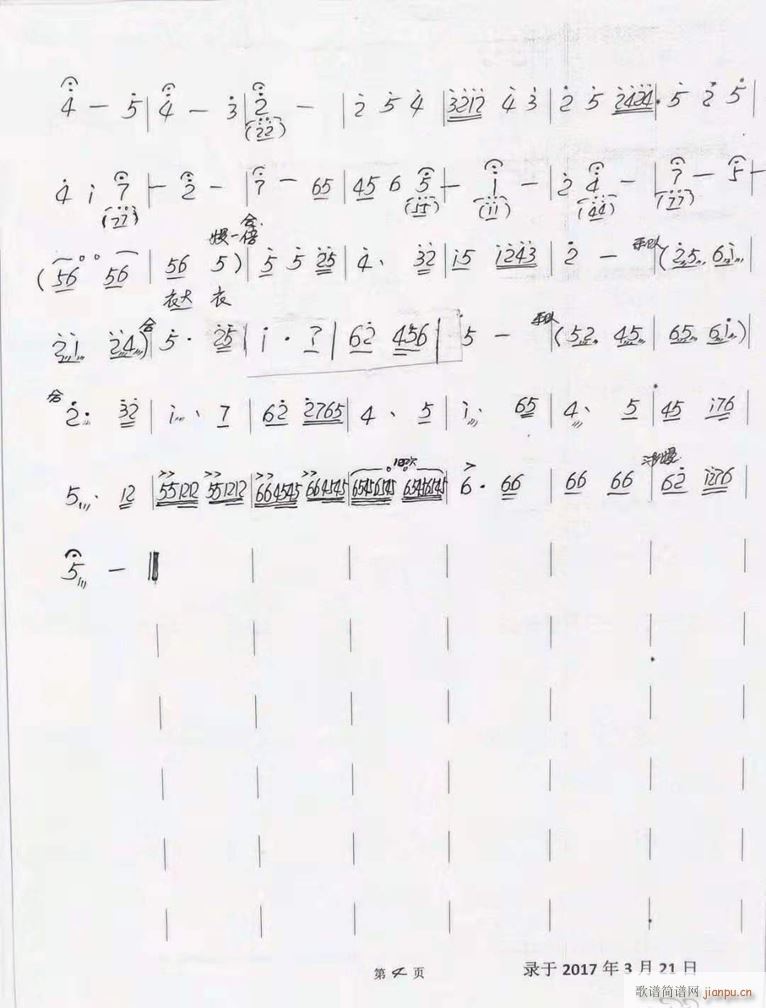 4 — 5 | 4 — 3 | 2 — | 2 5 4 | 3212 4 3 | 2 5 2424 · 5 2 5 |
(22)
4 i 7 | — 2 — | 7 — 65 | 45 6 5 | — 1 — | 2 4 — | 7 — 5 —
(77) (55) (11) (44) (77)
慢一倍 合
(56 56 | 56 5) | 5 5 25 | 4· 32 | i5 i243 | 2 — | (25 6i |
衣大 衣
2i 24) | 合 5 · 25 | i · 7 | 62 456 | 5 — | (52 45 | 65 6i) |
合 2· 32 | i· 7 | 62 2765 | 4· 5 | i· 65 | 4· 5 | 45 i76 |
渐慢
5· 12 | 551212 551212 | 664545 664545 | 65456545 65456545 | 6· 66 | 66 66 | 62 i276 |
5 — ‖
第 4 页
录于 2017 年 3 月 21 日
歌谱简谱网 jianpu.cn